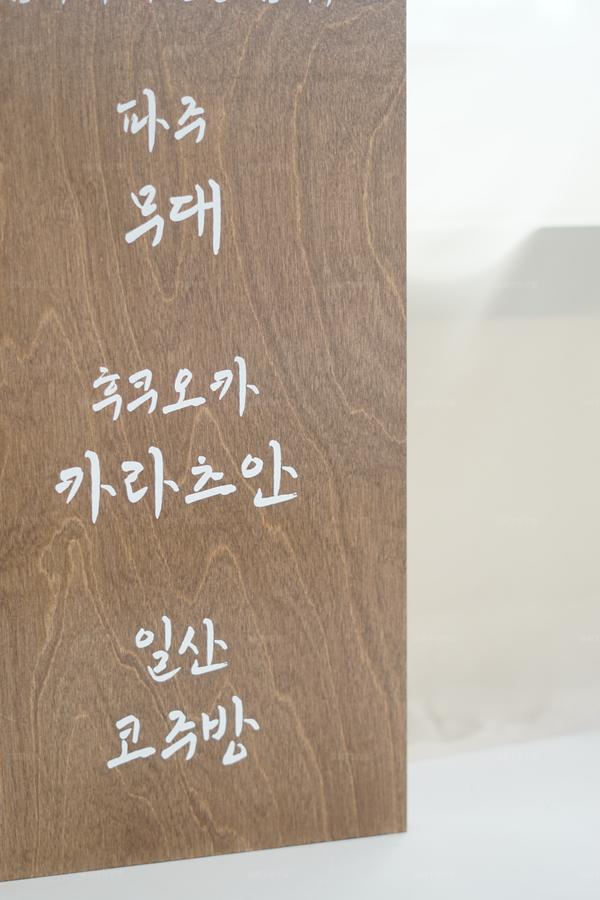 파주
무대
후쿠오카
카라츠안
일산
코주방